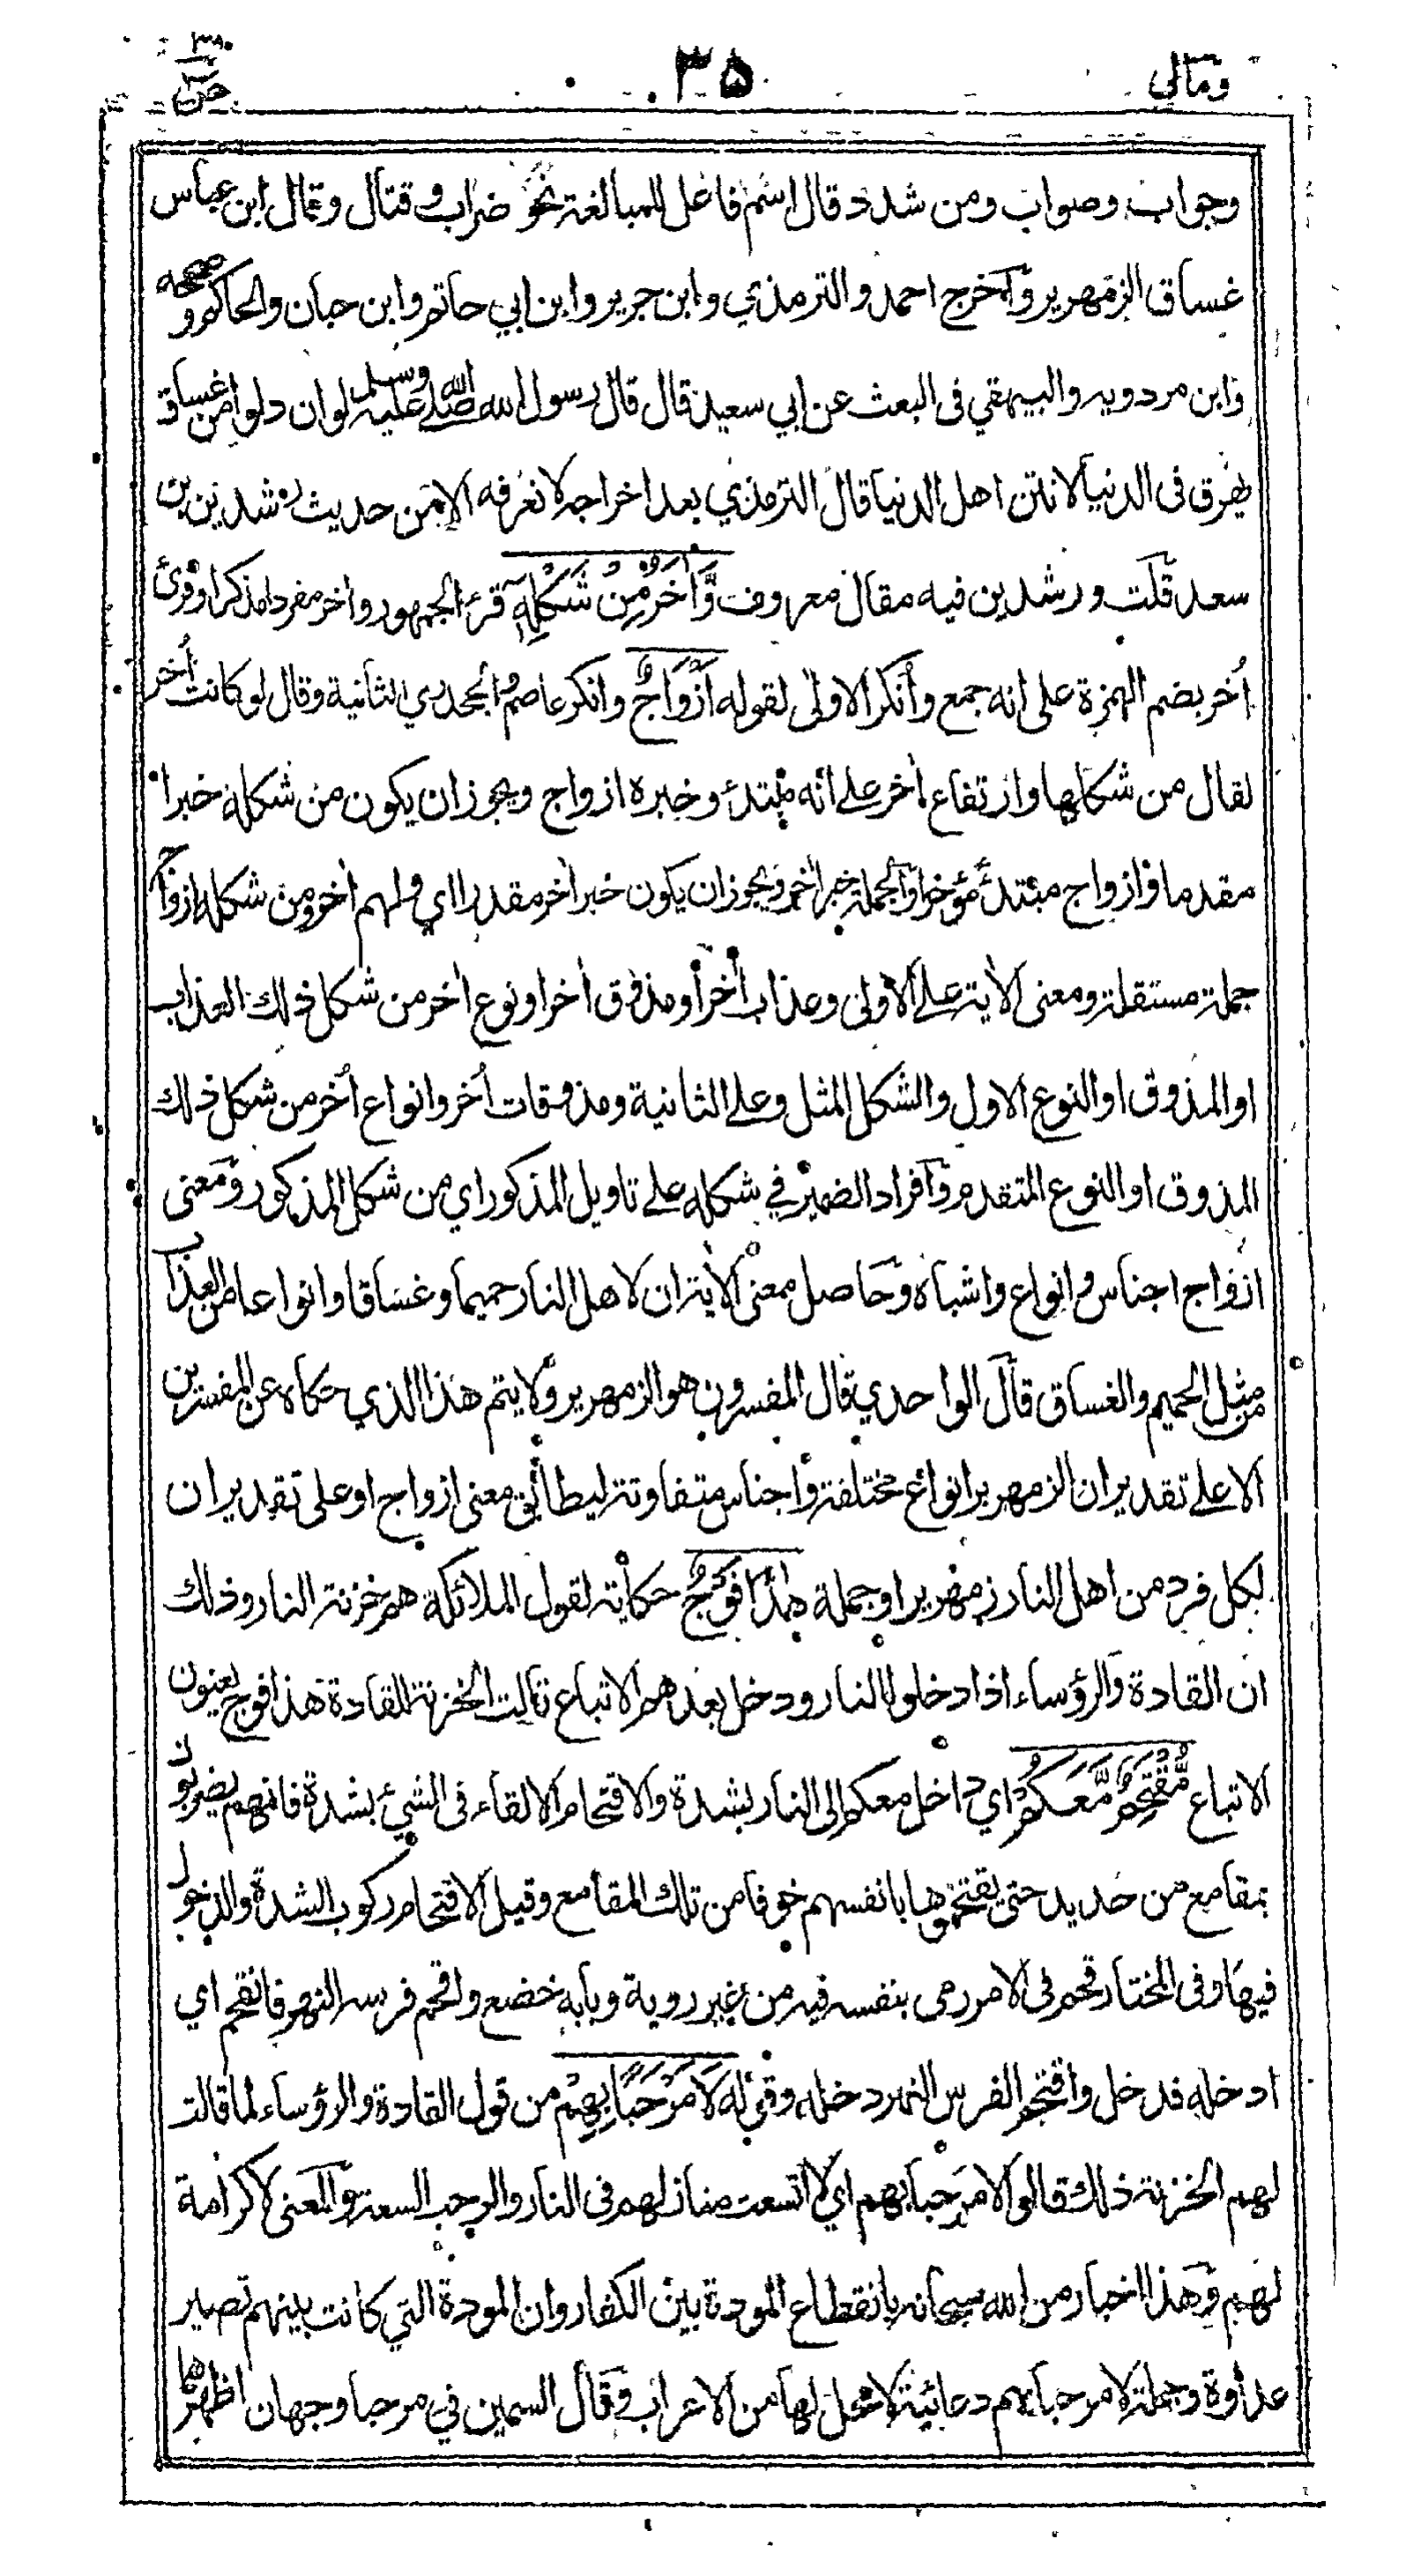 ومالي
٣٥
ص ٣٨
وجواب وصواب ومن شدد قال اسم فاعل للمبالغة نحو ضراب وقتال وقال ابن عباس
غساق الزمهرير وأخرج احمد والترمذي وابن جرير وابن ابي حاتم وابن حبان والحاكم وصححه
وابن مردويه والبيهقي فى البعث عن ابي سعيد قال قال رسول الله صلى الله عليه وسلم لو ان دلوا من غساق
يهرق فى الدنيا لانتن اهل الدنيا قال الترمذي بعد اخراجه لا نعرفه الا من حديث رشدين بن
سعد قلت ورشدين فيه مقال معروف وَّاٰخَرُ مِنْ شَكْلِهٖٓ قرء الجمهور واخر مفردا مذكرا وقرئ
أُخر بضم الهمزة على انه جمع وأنكر الاولى لقوله اَزْوَاجٌ وانكر عاصم الجحدري الثانية وقال لو كانت أُخر
لقال من شكلها وارتفاع اٰخر على انه مبتدأ وخبره ازواج ويجوز ان يكون من شكله خبرا
مقدما وازواج مبتدأ مؤخرا والجملة خبر اٰخر ويجوز ان يكون خبر اٰخر مقدرا اي ولهم اٰخر ومن شكله ازواج
جملة مستقلة ومعنى الاٰية على الاولى وعذاب اٰخر او مذوق اٰخر او نوع اٰخر من شكل ذلك العذاب
او المذوق او النوع الاول والشكل المثل وعلى الثانية ومذوقات أُخر وانواع أُخر من شكل ذلك
المذوق او النوع المتقدم وأفراد الضمير في شكله على تاويل المذكور اي من شكل المذكور ومعنى
ازواج اجناس وانواع واشباه وحاصل معنى الاٰية ان لاهل النار حميما وغساقا وانواعا من العذاب
من مثل الحميم والغساق قال الواحدي قال المفسرون هو الزمهرير ولا يتم هذا الذي حكاه عن المفسرين
الا على تقدير ان الزمهرير انواع مختلفة واجناس متفاوتة ليطابق معنى ازواج او على تقدير ان
لكل فرد من اهل النار زمهرير او جملة هٰذَا فَوْجٌ حكاية لقول الملائكة هم خزنة النار وذلك
ان القادة والرؤساء اذا دخلوا النار ودخل بعدهم الاتباع قالت الخزنة للقادة هذا فوج يعنون
الاتباع مُّقْتَحِمٌ مَّعَكُمْ اي داخل معكم الى النار بشدة والاقتحام الالقاء فى الشيئ بشدة فانهم يضربون
بمقامع من حديد حتى يقتحموها بانفسهم خوفا من تلك المقامع وقيل الاقتحام ركوب الشدة والدخول
فيها وفى المختار قحم فى الامر رمى بنفسه فيه من غير روية وبابه خضع واقحم فرسه النهر فانقحم اي
ادخله فدخل واقتحم الفرس النهر دخله وقوله لَا مَرْحَبًا بِهِمْ من قول القادة والرؤساء لما قالت
لهم الخزنة ذلك قالوا لا مرحبا بهم اي لا اتسعت منازلهم فى النار والرحب السعة والمعنى لا كرامة
لهم وهذا اخبار من الله سبحانه بانقطاع المودة بين الكفار وان المودة التي كانت بينهم تصير
عداوة وجملة لا مرحبا بهم دعائية لا محل لها من الاعراب وقال السمين في مرحبا وجهان اظهرها